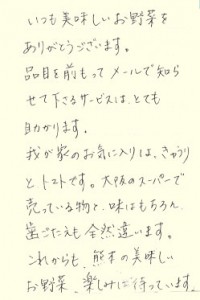 いつも美味しいお野菜を
ありがとうございます。
品目を前もってメールで知ら
せて下さるサービスは、とても
助かります。
我が家のお気に入りは、きゅうり
と、トマトです。大阪のスーパーで
売っている物と、味はもちろん、
歯ごたえも全然違います。
これからも、熊本の美味しい
お野菜、楽しみに待っています。